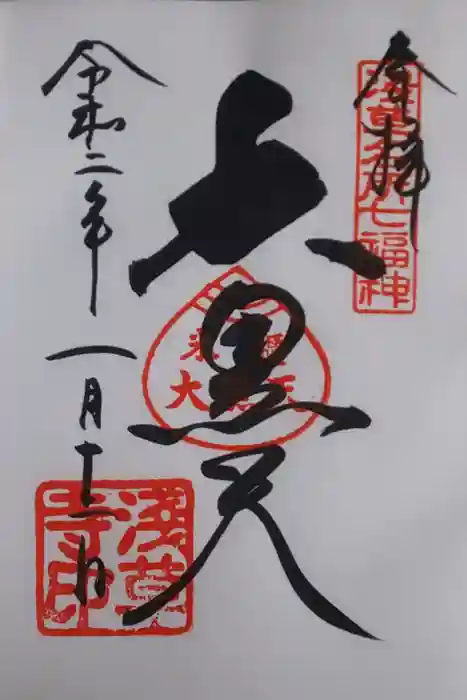 奉拝
浅草名所七福神
大黒天
大黒天
令和二年一月十二日
浅草寺印